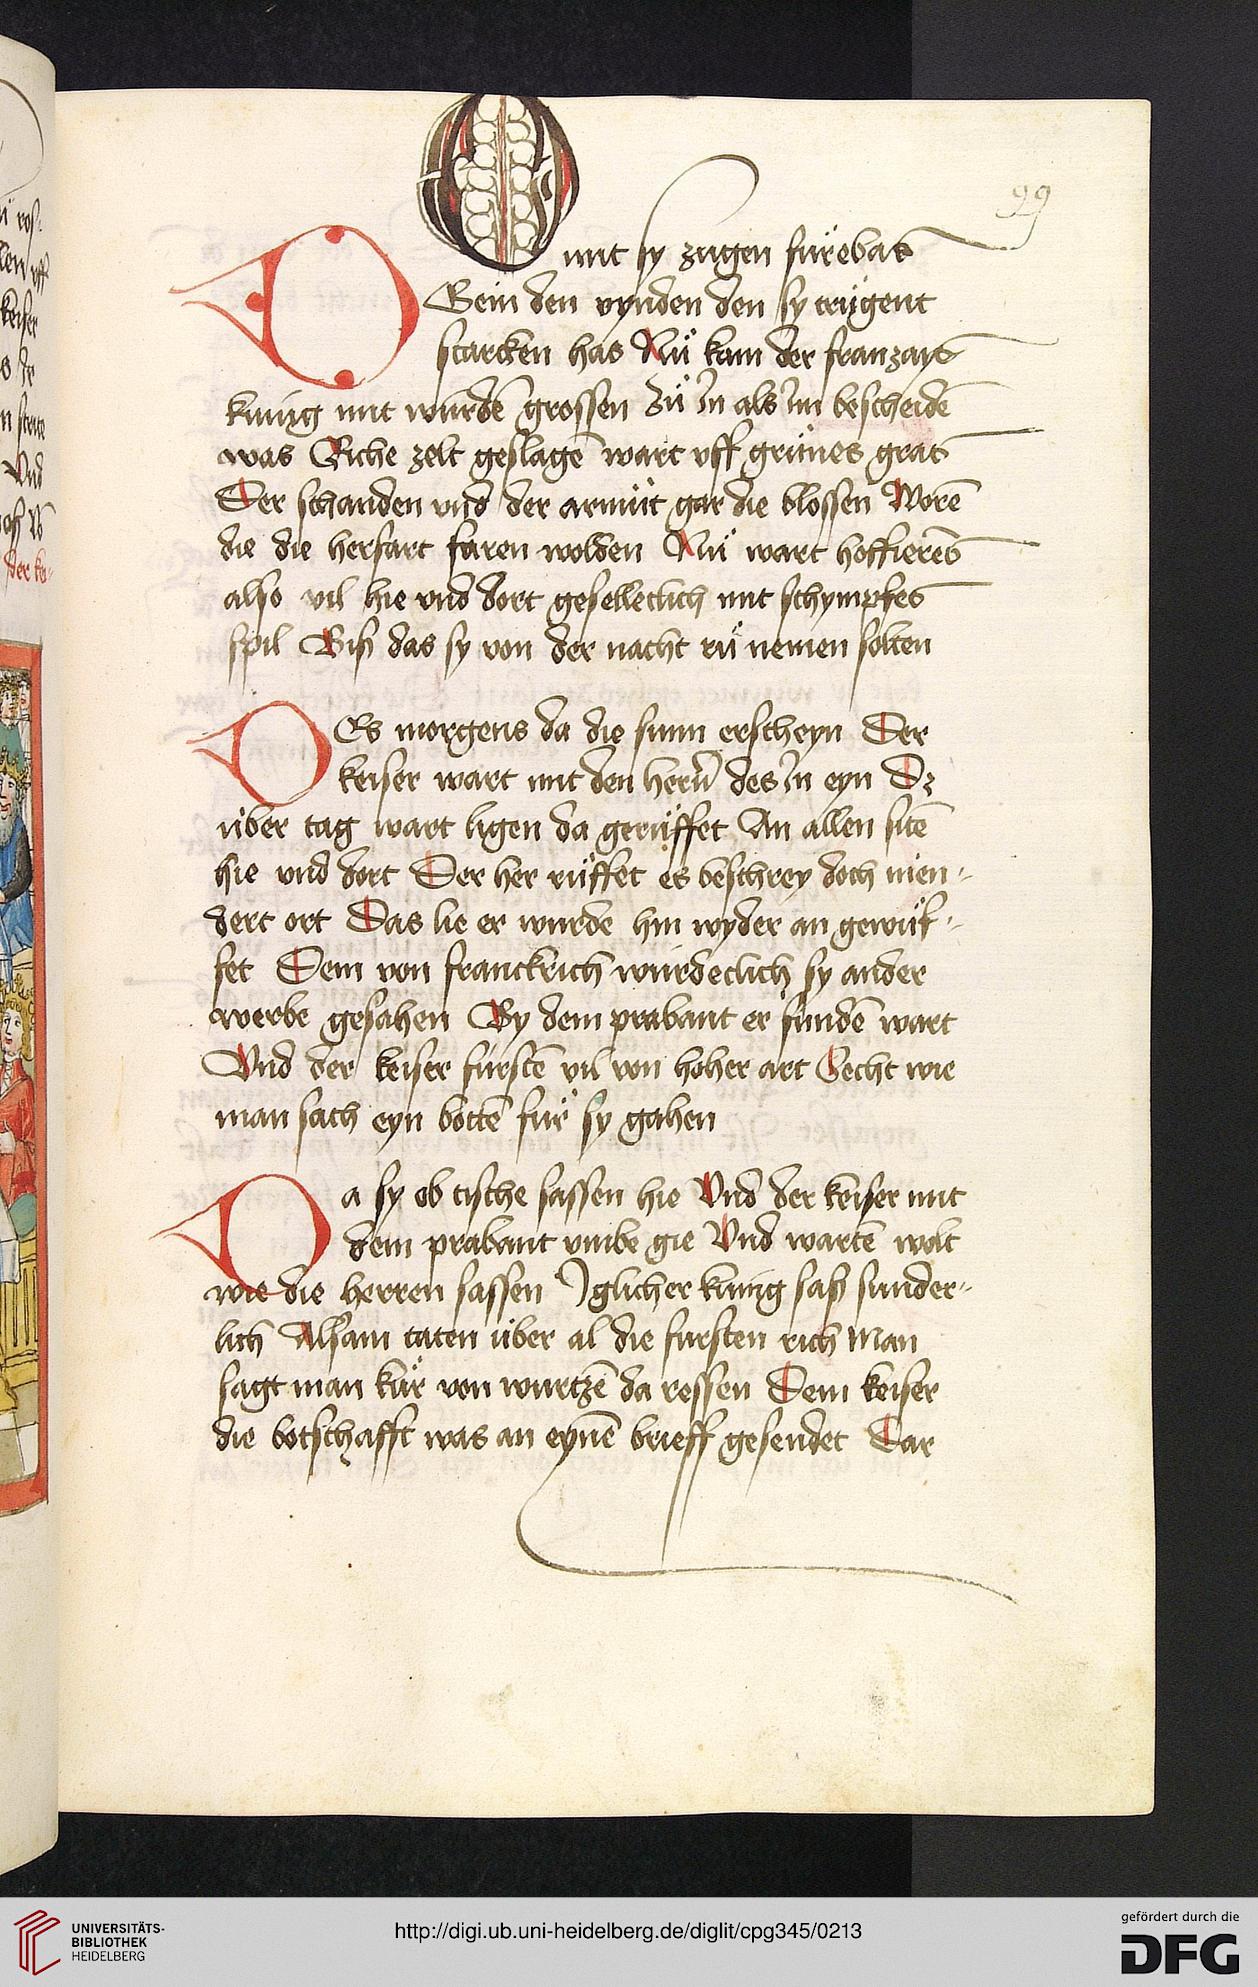 99
Damit sy zugen fürebas
Gein den vynden den sy trügent
starcken has Nuͦ kam der franzays
kunig mit wurdē grossen Zuͦ Jn als Jm bescheidē
was Riche zelt geslagē wart vff gruͤnes gras
Der schanden vnd der armuͤt gar die blossen Worē
die die herfart faren wolden Nuͦ wart hoffierēs
also vil hie vnd dort geselleclich mit schympfes
spil Biß das sy von der nacht ruͦ nemen solten
DEs morgens da die sunn erscheyn Der
keiser wart mit den herñ des Jn eyn Dz
über tag wart ligen da geruͤffet An allen sitē
hie vnd dort Der her ruͤffet es beschrey doch nien-
dert ort Das lie er wurde hin wyder an gewuͤf-
fet Dem von franckrich wurdeclich sy ander
werbe gesahen By dem prabant er fundē wart
Vnd der keiser furstē vil von hoher art Secht wie
man sach eyn bottē fur sy gahen
Da sy ob tische sassen hie Vnd der keiser mit
dem prabant vmbe gie Vnd wartē wolt
wie die herren sassen Jglicher kunig saß sunder-
lich Alsam taten über al die fursten rich Man
sagt man kuͤr von wurtzē da ressen Dem keiser
die botschafft was an eynē brieff gesendet Dar
UNIVERSITÄTS-
BIBLIOTHEK
HEIDELBERG
http://digi.ub.uni-heidelberg.de/diglit/cpg345/0213
gefördert durch die
DFG